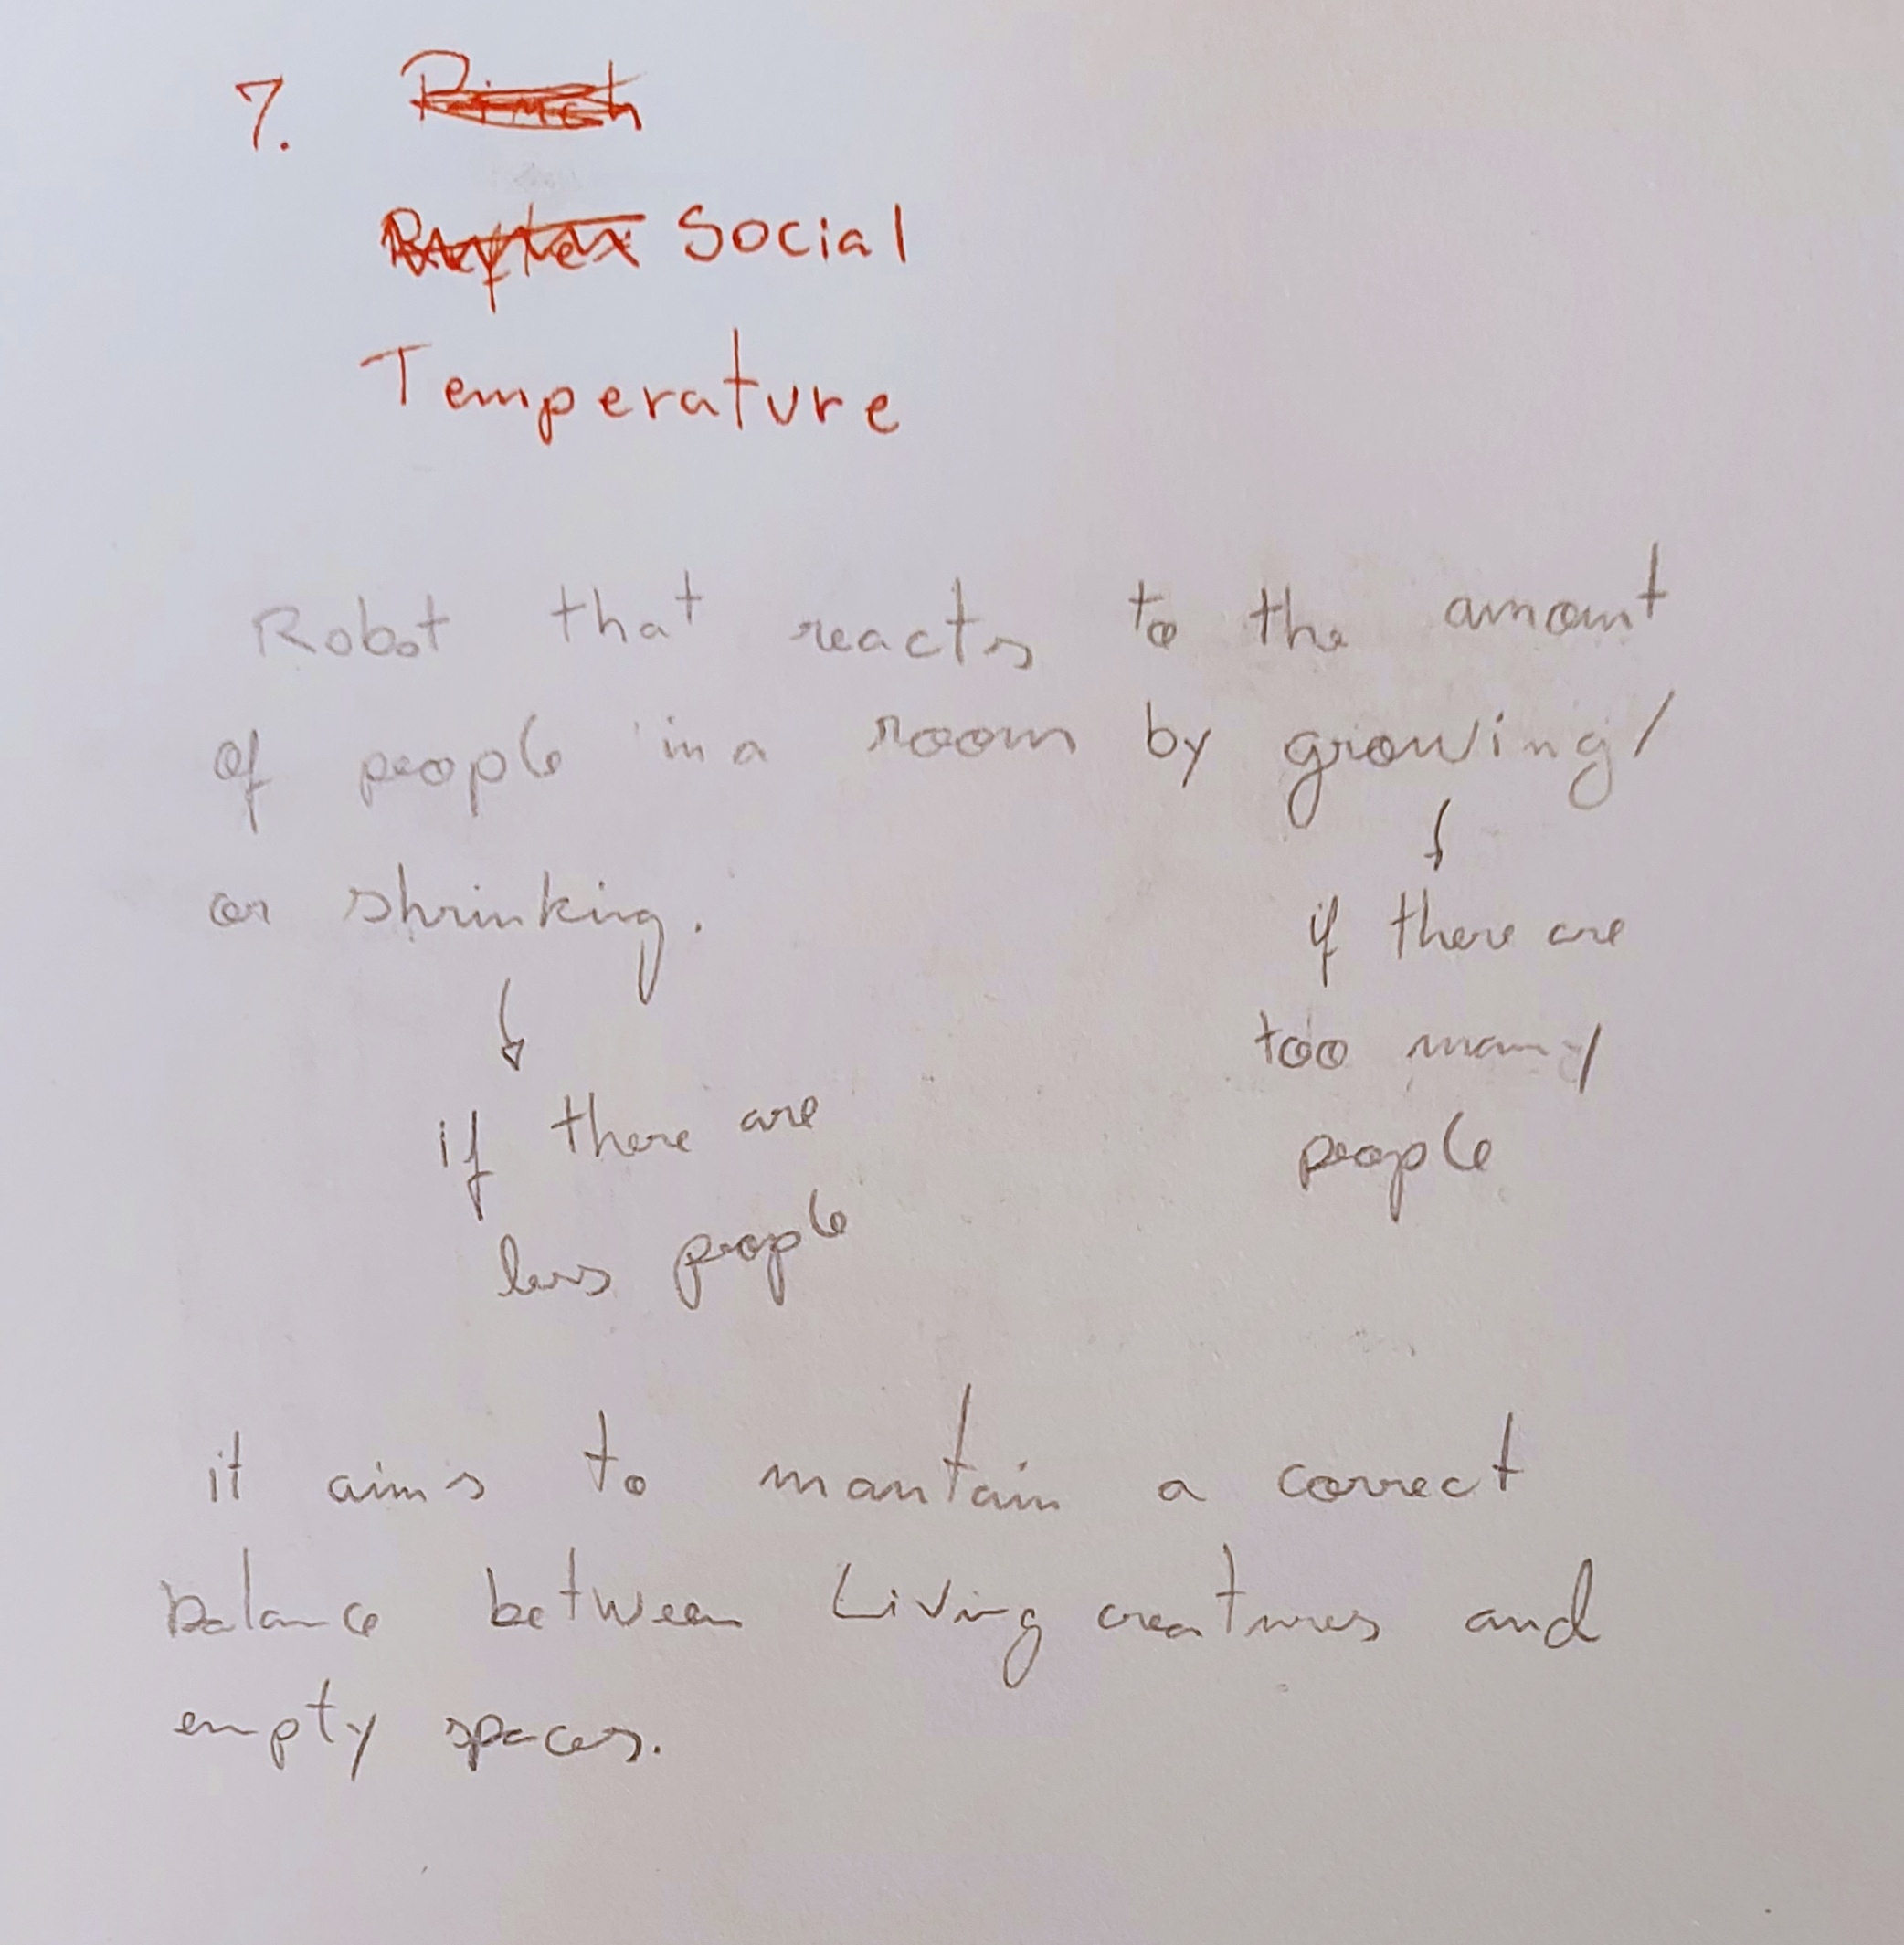 7.
Social
Temperature
Robot that reacts to the amount
of people in a room by growing/
or shrinking.
if there are
too many
people
if there are
less people
it aims to mantain a correct
balance between Living creatures and
empty spaces.